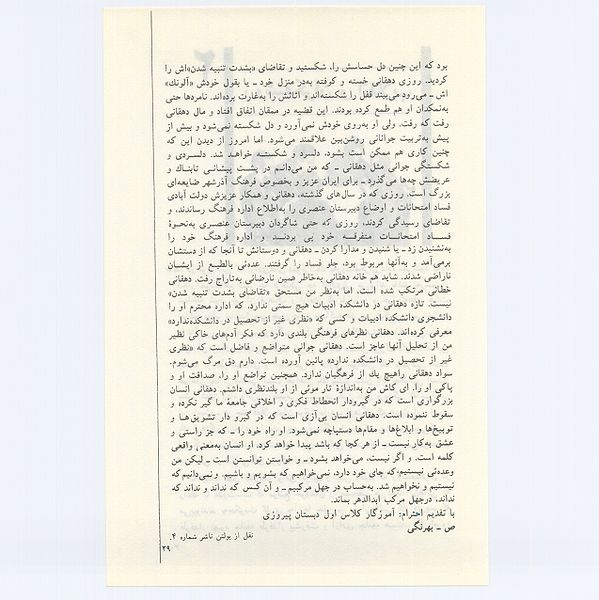 بود که این چنین دل حساسش را، شکستید و تقاضای «بشدت تنبیه شدن»اش را
کردید. روزی دهقانی خسته و کوفته به‌در منزل خود ـ یا بقول خودش «آلونك»
اش ـ می‌رود می‌بیند قفل را شکسته‌اند و اثاثش را به‌غارت برده‌اند. نامردها حتی
به‌نمکدان او هم طمع کرده بودند. این قضیه در ممقان اتفاق افتاد و مال دهقانی
رفت که رفت. ولی او به‌روی خودش نمی‌آورد و دل شکسته نمی‌شود و بیش از
پیش به‌تربیت جوانانی روشن‌بین علاقمند می‌شود. اما امروز از دیدن این که
چنین کاری هم ممکن است بشود، دلسرد و شکسته خواهد شد. دلسردی و
شکستگی جوانی مثل دهقانی ـ که من می‌دانم در پشت پیشانی تابناك و
عریضش چه‌ها می‌گذرد ـ برای ایران عزیز و بخصوص فرهنگ آذرشهر ضایعه‌ای
بزرگ است. روزی که در سال‌های گذشته، دهقانی و همکار عزیزش دولت آبادی
فساد امتحانات و اوضاع دبیرستان عنصری را به‌اطلاع اداره فرهنگ رساندند، و
تقاضای رسیدگی کردند، روزی که حتی شاگردان دبیرستان عنصری به‌نحوهٔ
فساد امتحانات متفرقه خود پی بردند و اداره فرهنگ خود را
به‌نشنیدن زد ـ یا شنیدن و مدارا کردن ـ دهقانی و دوستانش تا آنجا که از دستشان
برمی‌آمد و به‌آنها مربوط بود، جلو فساد را گرفتند. عده‌ئی بالطبع از ایشان
ناراضی شدند. شاید هم خانه دهقانی به‌خاطر همین نارضائی به‌تاراج رفت. دهقانی
خطائی مرتکب شده است. اما به‌نظر من مستحق «تقاضای بشدت تنبیه شدن»
نیست. تازه دهقانی در دانشکده ادبیات هیچ سمتی ندارد، که اداره محترم او را
دانشجوی دانشکده ادبیات و کسی که «نظری غیر از تحصیل در دانشکده‌ندارد»
معرفی کرده‌اند. دهقانی نظرهای فرهنگی بلندی دارد که فکر آدم‌های خاکی نظیر
من از تحلیل آنها عاجز است. دهقانی جوانی متواضع و فاضل است که «نظری
غیر از تحصیل در دانشکده ندارد» پائین آورده است. دارم دق مرگ می‌شوم.
سواد دهقانی راهیچ یك از فرهگیان ندارد. همچنین تواضع او را، صداقت او و
پاکی او را. ای کاش من به‌اندازهٔ تار موئی از او بلندنظری داشتم. دهقانی انسان
بزرگواری است که در گیرودار انحطاط فکری و اخلاقی جامعهٔ ما گیر نکرده و
سقوط ننموده است. دهقانی انسان بی‌آزی است که در گیرو دار تشویق‌ها و
توبیخ‌ها و ابلاغ‌ها و مقام‌ها دستپاچه نمی‌شود. او راه خود را ـ که جز راستی و
عشق به‌کار نیست ـ از هر کجا که باشد پیدا خواهد کرد. او انسان به‌معنی واقعی
کلمه است. و اگر نیست، می‌خواهد بشود ـ و خواستن توانستن است ـ لیکن من
وعده‌ئی نیستیم، که جای خود دارد، نمی‌خواهیم که بشویم و باشیم. و نمی‌دانیم که
نیستیم و نخواهیم شد. به‌حساب در جهل مرکبیم ـ و آن کس که نداند و نداند که
نداند، درجهل مرکب ابدالدهر بماند.
با تقدیم احترام: آموزگار کلاس اول دبستان پیروزی
ص ـ بهرنگی
نقل از بولتن ناشر شماره ۴.
۲۹